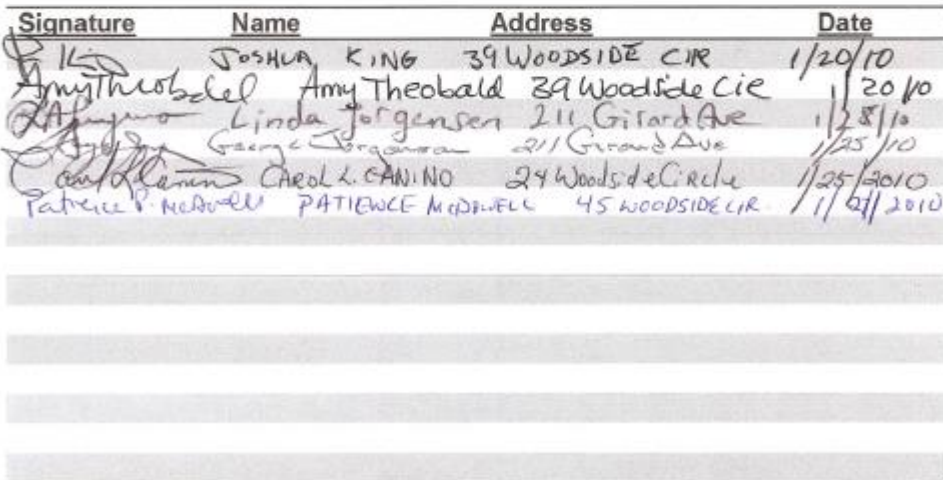 Signature Name Address Date
King JOSHUA KING 39 WOODSIDE CIR 1/20/10
Amy Theobald Amy Theobald 39 Woodside Cir 1/20/10
Linda Jorgensen 211 Girard Ave 1/28/10
George Jorgensen 211 Girard Ave 1/25/10
CAROL L. CANINO 24 Woodside Circle 1/25/2010
Patience P. McDowell PATIENCE McDOWELL 45 WOODSIDE CIR. 2010